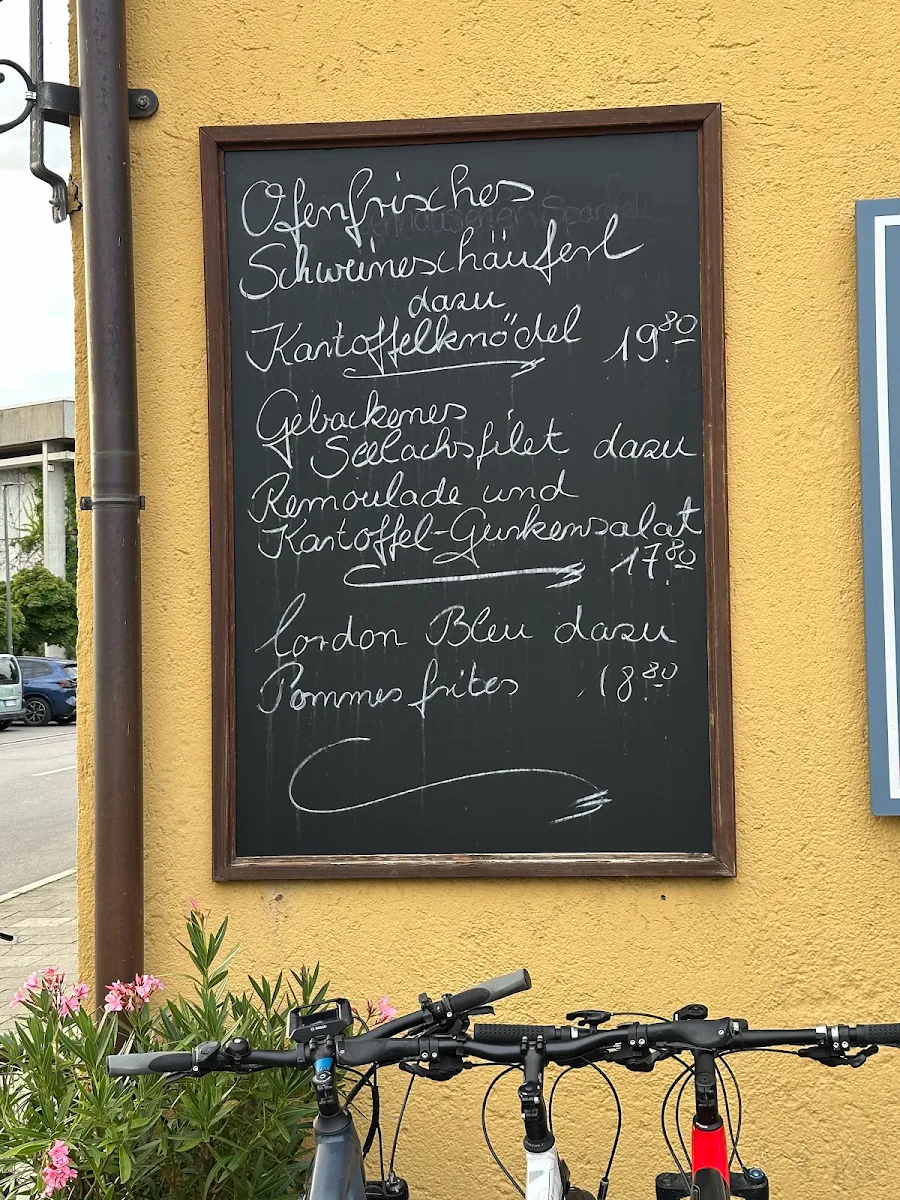 Ofenfrisches
Schweineschäuferl
dazu
Kartoffelknödel 19.80
Gebackenes
Seelachsfilet dazu
Remoulade und
Kartoffel-Gurkensalat
17.80
Cordon Bleu dazu
Pommes frites 18.80